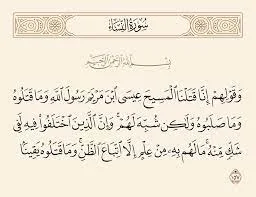 سُورَةُ النِّسَاءِ
بِسْمِ اللَّهِ الرَّحْمَٰنِ الرَّحِيمِ
وَقَوْلِهِمْ إِنَّا قَتَلْنَا الْمَسِيحَ عِيسَى ابْنَ مَرْيَمَ رَسُولَ اللَّهِ وَمَا قَتَلُوهُ
وَمَا صَلَبُوهُ وَلَٰكِن شُبِّهَ لَهُمْ ۚ وَإِنَّ الَّذِينَ اخْتَلَفُوا فِيهِ لَفِي
شَكٍّ مِّنْهُ ۚ مَا لَهُم بِهِ مِنْ عِلْمٍ إِلَّا اتِّبَاعَ الظَّنِّ ۚ وَمَا قَتَلُوهُ يَقِينًا ١٥٧